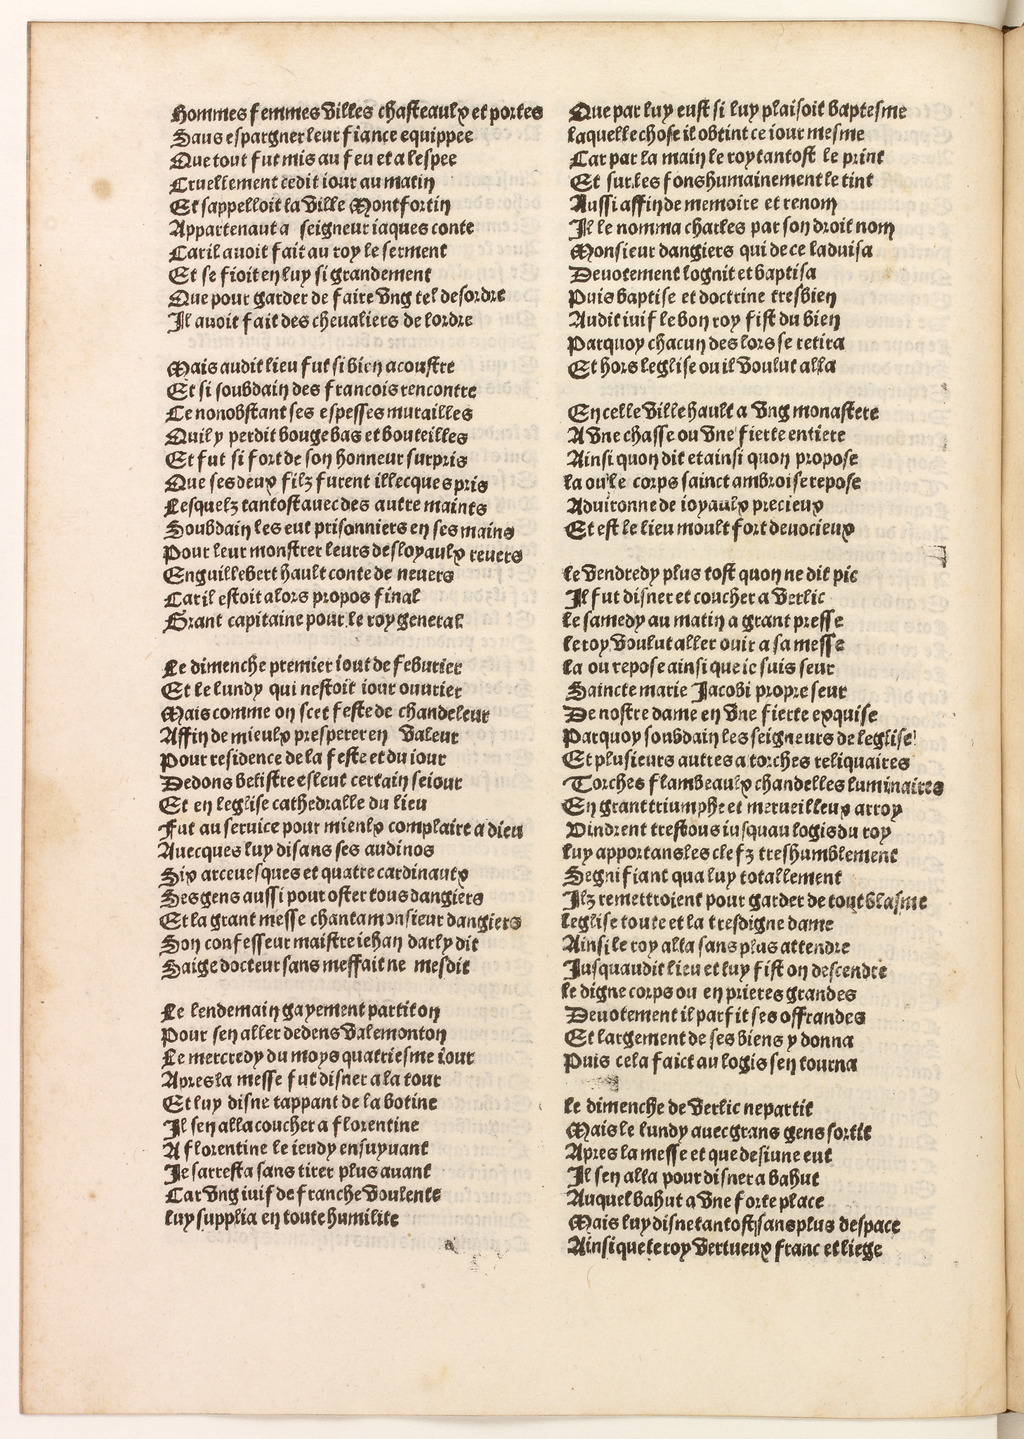 Hommes femmes villes chasteaulx et portes
Saus espargner leur fiance equippee
Que tout fut mis au feu et a lespee
Cruellement cedit iour au matin
Et sappelloit la ville Montfortin
Appartenant a seigneur iaques conte
Car il auoit fait au roy le serment
Et se fioit en luy si grandement
Que pour garder de faire vng tel desordre
Il auoit fait des cheualiers de lordre
Mais audit lieu fut si bien acoustre
Et si soubdain des francois rencontre
Ce nonobstant ses espesses murailles
Quil y perdit bouge bas et bouteilles
Et fut si fort de son honneur surpris
Que ses deux filz furent illecques pris
Lesquelz tantost auec des autre maints
Soubdain les eut prisonniers en ses mains
Pour leur monstrer leurs desloyaulx reuers
Enguillebert hault conte de neuers
Car il estoit alors propos final
Grant capitaine pour le roy general
Le dimenche premier iout de feburier
Et le lundy qui nestoit iour ouurier
Mais comme on scet feste de chandeleur
Affin de mieulx presperer en valeur
Pour residence de la feste et du iour
Dedons belistre esleut certain seiour
Et en leglise cathedralle du lieu
Fut au seruice pour mienlx complaire a dieu
Auecques luy disans ses audinos
Six arceuesques et quatre cardinaulx
Ses gens aussi pour oster tous dangiers
Et la grant messe chanta monsieur dangiers
Son confesseur maistre iehan darly dit
Saige docteur sans meffait ne mesdit
Le lendemain gayement partit on
Pour sen aller dedens valemonton
Le mercredy du moys quatriesme iour
Apres la messe fut disner a la tour
Et luy disne tappant de la botine
Il sen alla coucher a florentine
A florentine le ieudy ensuyuant
Je sarresta sans tirer plus auant
Car vng iuif de franche voulente
luy supplia en toute humilite
Que par luy eust si luy plaisoit baptesme
laquelle chose il obtint ce iour mesme
Car par la main le roy tantost le print
Et sur les fons humainement le tint
Aussi affin de memoire et renom
Il le nomma charles par son droit nom
Monsieur dangiers qui de ce laduisa
Deuotement lognit et baptisa
Puis baptise et doctrine tresbien
Audit iuif le bon roy fist du bien
Parquoy chacun des lors se retira
Et hors leglise ou il voulut alla
En celle ville hault a vng monastere
A vne chasse ou vne fierte entiere
Ainsi quon dit et ainsi quon propose
la ou le corps sainct ambroise repose
Aduironne de ioyaulx precieux
Et est le lieu moult fort deuocieux
le vendredy plus tost quon ne dit pic
Il fut disner et coucher a verlic
le samedy au matin a grant presse
le roy voulut aller ouir a sa messe
la ou repose ainsi que ie suis seur
Saincte marie Jacobi propre seur
De nostre dame en vne fierte exquise
Parquoy soubdain les seigneurs de leglise
Et plusieurs autres a torches reliquaires
Torches flambeaulx chandelles luminaires
En grant triumphe et merueilleux arroy
Vindrent trestous iusquau logis du roy
luy apportans les clefz treshumblement
Segnifiant qua luy totallement
Ilz remettroient pour garder de tout blasme
leglise toute et la tresdigne dame
Ainsi le roy alla sans plus attendre
Jusquaudit lieu et luy fist on descendre
le digne corps ou en prieres grandes
Deuotement il parfit ses offrandes
Et largement de ses biens y donna
Puis cela faict au logis sen tourna
le dimenche de verlic ne partit
Mais le lundy auec grans gens sortit
Apres la messe et que desiune eut
Il sen alla pour disner a bahut
Auquel bahut a vne forte place
Mais luy disne tantost sans plus despace
Ainsi que le roy vertueux franc et liege